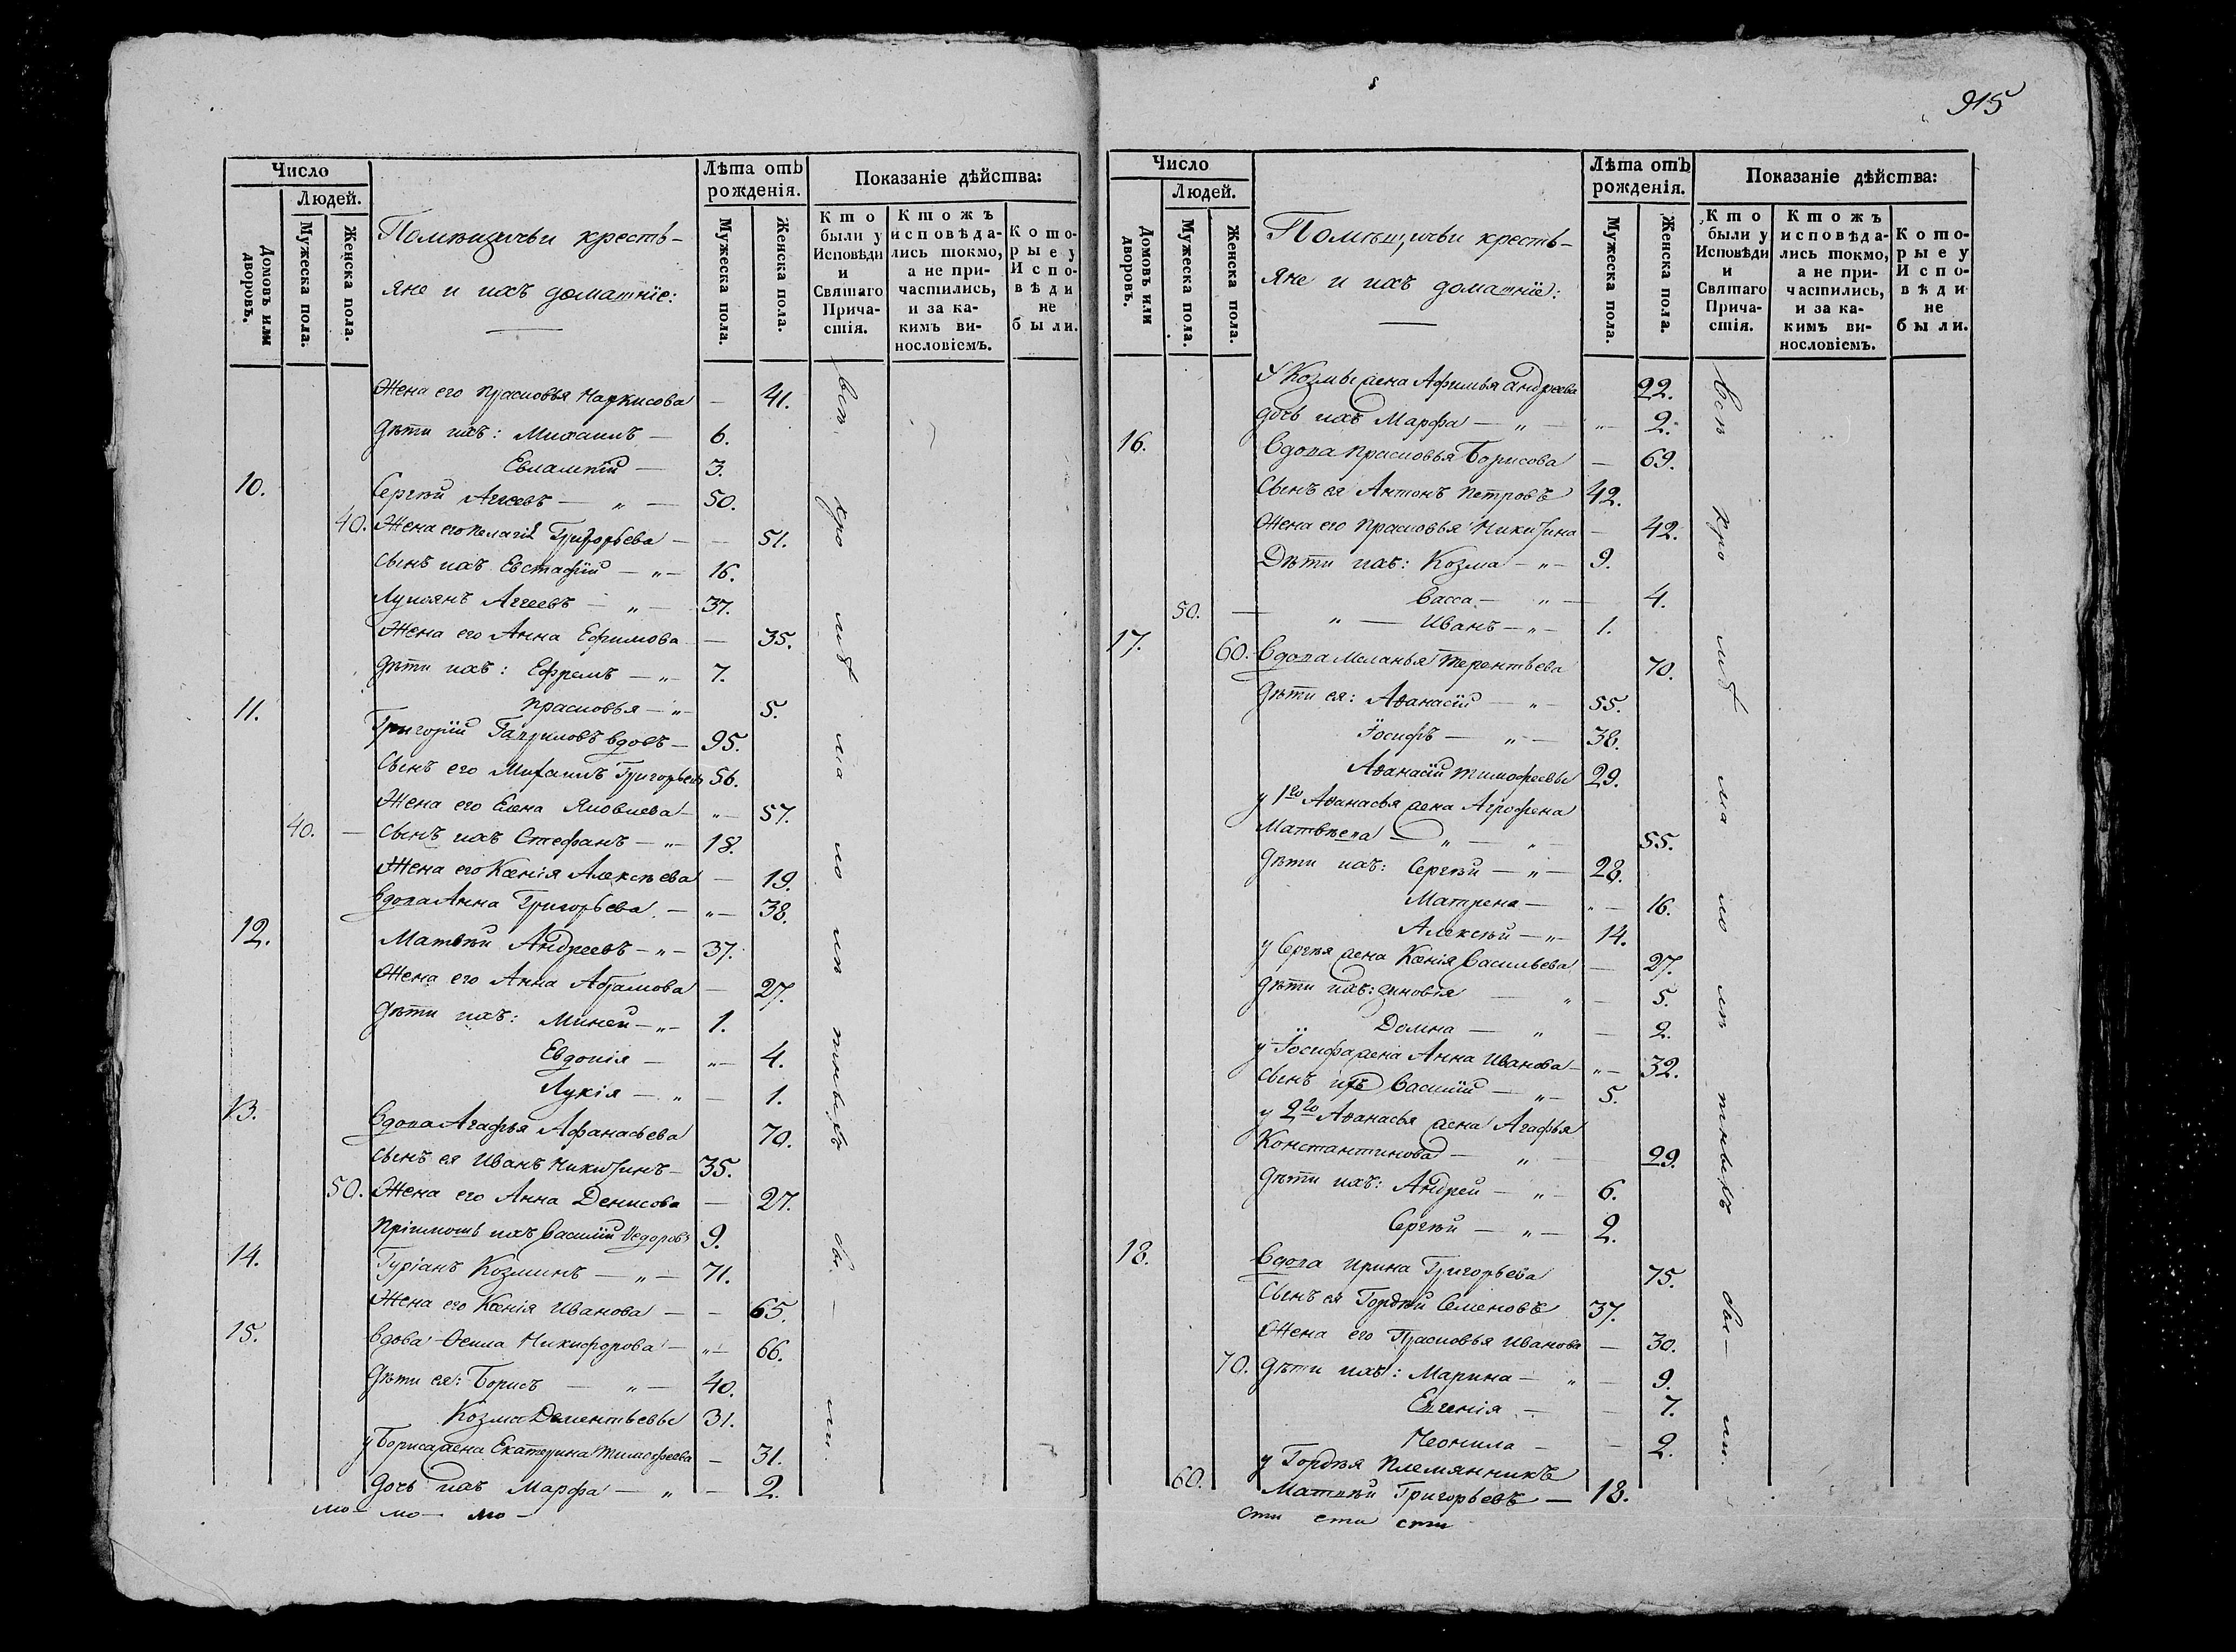 915
Число
Людей.
Домовъ или дворовъ.
Мужеска пола.
Женска пола.
Помѣщичьи кресть-
яне и ихъ домашніе:
Лѣта отъ рожденія.
Мужеска пола.
Женска пола.
Показаніе дѣйства:
Кто были у Исповѣди и Святаго Прича-стія.
Ктожъ исповѣда-лись токмо, а не при-частились, и за ка-кимъ ви-нословіемъ.
Кото-рые у Испо-вѣди не были.
Жена его Прасковья Наркисова — 41.
Дѣти ихъ: Михаилъ — 6.
Евлампій — 3.
10. Сергѣй Аггеевъ — „ — 50.
40. Жена его Пелагія Григорьева — — 51.
Сынъ ихъ Евстафій — „ — 16.
Лукіянъ Аггеевъ — „ — 37.
Жена его Анна Ефимова — 35.
Дѣти ихъ: Ефремъ — „ — 7.
Прасковья — „ — 5.
11. Григорій Гавриловъ вдовъ — 95.
Сынъ его Михаилъ Григорьевъ 56.
Жена его Елена Яковлева — „ — 57.
40. — Сынъ ихъ Стефанъ — „ — 18.
Жена его Ксенія Алексѣева — 19.
Вдова Анна Григорьева — „ — 38.
12. Матвѣй Андреевъ — „ — 37.
Жена его Анна Абрамова — 27.
Дѣти ихъ: Миней — „ — 1.
Евдокія — „ — 4.
Лукія — „ — 1.
13. Вдова Агафья Афанасьева 70.
Сынъ ея Иванъ Никитинъ — 35.
50. Жена его Анна Денисова — 27.
Пріимышъ ихъ Василій Ѳедоровъ 9.
14. Гуріанъ Козминъ — „ — 71.
Жена его Ксенія Иванова — — 65.
15. Вдова Ѳекла Никифорова — „ — 66.
Дѣти ея: Борисъ — „ — 40.
Козма Дементьевы 31.
у Бориса жена Екатерина Тимофеева — 31.
Дочь ихъ Марфа — „ — 2.
всѣ кро мѣ ма ло лѣ тныхъ бы — ли.
мо — мо — мо —
Число
Людей.
Домовъ или дворовъ.
Мужеска пола.
Женска пола.
Помѣщичьи кресть-
яне и ихъ домашніе:
Лѣта отъ рожденія.
Мужеска пола.
Женска пола.
Показаніе дѣйства:
Кто были у Исповѣди и Святаго Прича-стія.
Ктожъ исповѣда-лись токмо, а не при-частились, и за ка-кимъ ви-нословіемъ.
Кото-рые у Испо-вѣди не были.
У Козмы жена Афимья Андреева 22.
дочь ихъ Марфа — „ — „ — 2.
16. Вдова Прасковья Борисова — 69.
Сынъ ея Антонъ Петровъ 42.
Жена его Прасковья Никитина — 42.
Дѣти ихъ: Козма — „ — 9.
Васса — „ — 4.
50. — „ — Иванъ — „ — 1.
17. 60. Вдова Меланья Терентьева 70.
Дѣти ея: Аѳанасій — „ — 55.
Іосифъ — „ — 38.
Аѳанасій Тимофеевы 29.
у 1го Аѳанасья жена Агрофена
Матвѣева — „ — „ — 55.
Дѣти ихъ: Сергѣй — „ — 28.
Матрена — „ — 16.
Алексѣй — „ — 14.
у Сергѣя жена Ксенія Васильева — 27.
Дѣти ихъ: Зиновія — „ — 5.
Домна — „ — 2.
у Іосифа жена Анна Иванова — „ — 32.
Сынъ ихъ Василій — „ — 5.
у 2го Аѳанасья жена Агафья
Константинова — „ — 29.
Дѣти ихъ: Андрей — „ — 6.
Сергѣй — „ — 2.
18. Вдова Ирина Григорьева 75.
Сынъ ея Гордѣй Семеновъ 37.
Жена его Прасковья Иванова — 30.
70. Дѣти ихъ: Марина — „ — 9.
Евгенія — — 7.
Неонила — — 2.
у Гордѣя племянникъ
60. Матвѣй Григорьевъ — 18.
Всѣ кро мѣ ма ло лѣ тныхъ бы — ли.
сти сти сти